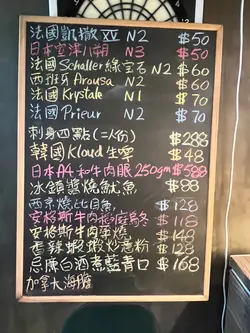 法國凱撒 XV N2 $50
日本室津川朔 N3 $50
法國Schaller綠寶石 N2 $60
西班牙Arousa N2 $60
法國Krystale N1 $70
法國Prieur N2 $70
刺身四點(二人份) $288
韓國Kloud生啤 $48
日本A4和牛肉眼 250gm $588
冰鎮醬燒魷魚 $88
西京燒比目魚 $128
安格斯牛肉 $118
安格斯牛肉 $148
香辣蝦蝦炒薏粉 $128
忌廉白酒煮藍青口 $168
加拿大海膽